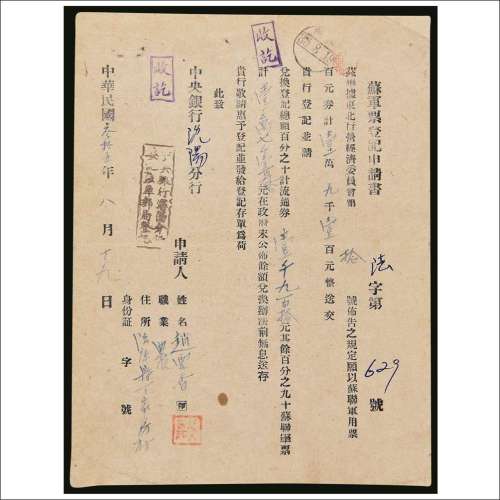 蘇軍票登記申請書 法字第 629 號
東北行營經濟委員會第 拾 號佈告之規定願以蘇聯軍用票
百元券計壹萬九千壹百元整送交
貴行登記並請
兌換登記總額百分之十計流通券壹千九百拾元其餘百分之九十蘇聯軍票
計壹萬七千元在政府未公佈餘額兌換辦法前無息送存
貴行敬請惠予登記並發給登記存單為荷
此致
中央銀行沈陽分行
申請人 姓名 趙
職業 農
住所 法庫縣
身份証 字 號
中華民國叁拾五年八月十九日
收訖
收訖